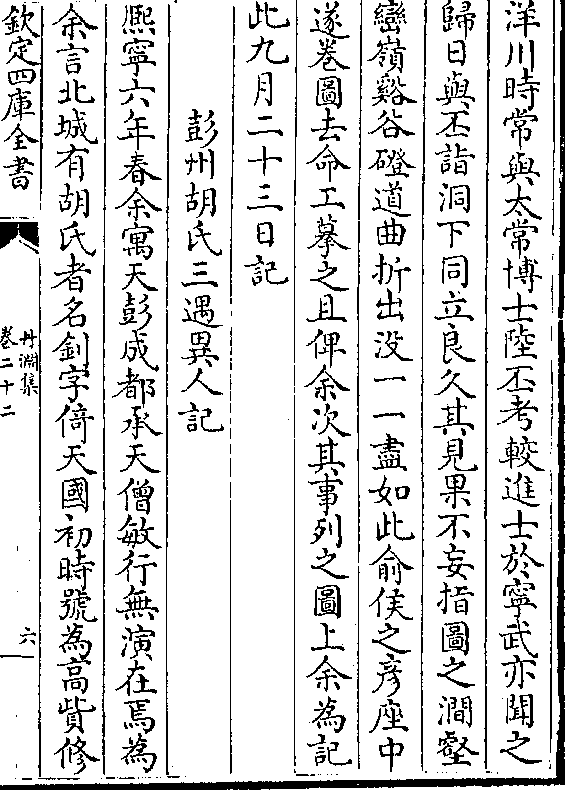 洋川時常與太常博士陸丕考較進士於寧武亦聞之
歸日與丕詣洞下同立良久其見果不妄指圖之澗壑
巒嶺谿谷磴道曲折出没一一盡如此俞侯之彦座中
遂卷圖去命工摹之且俾余次其事列之圖上余為記
此九月二十三日記
彭州胡氏三遇異人記
熙寧六年春余寓天彭成都承天僧敏行無演在焉為
余言北城有胡氏者名釗字倚天國初時號為高貲修
欽定四庫全書
丹淵集
卷二十二
六